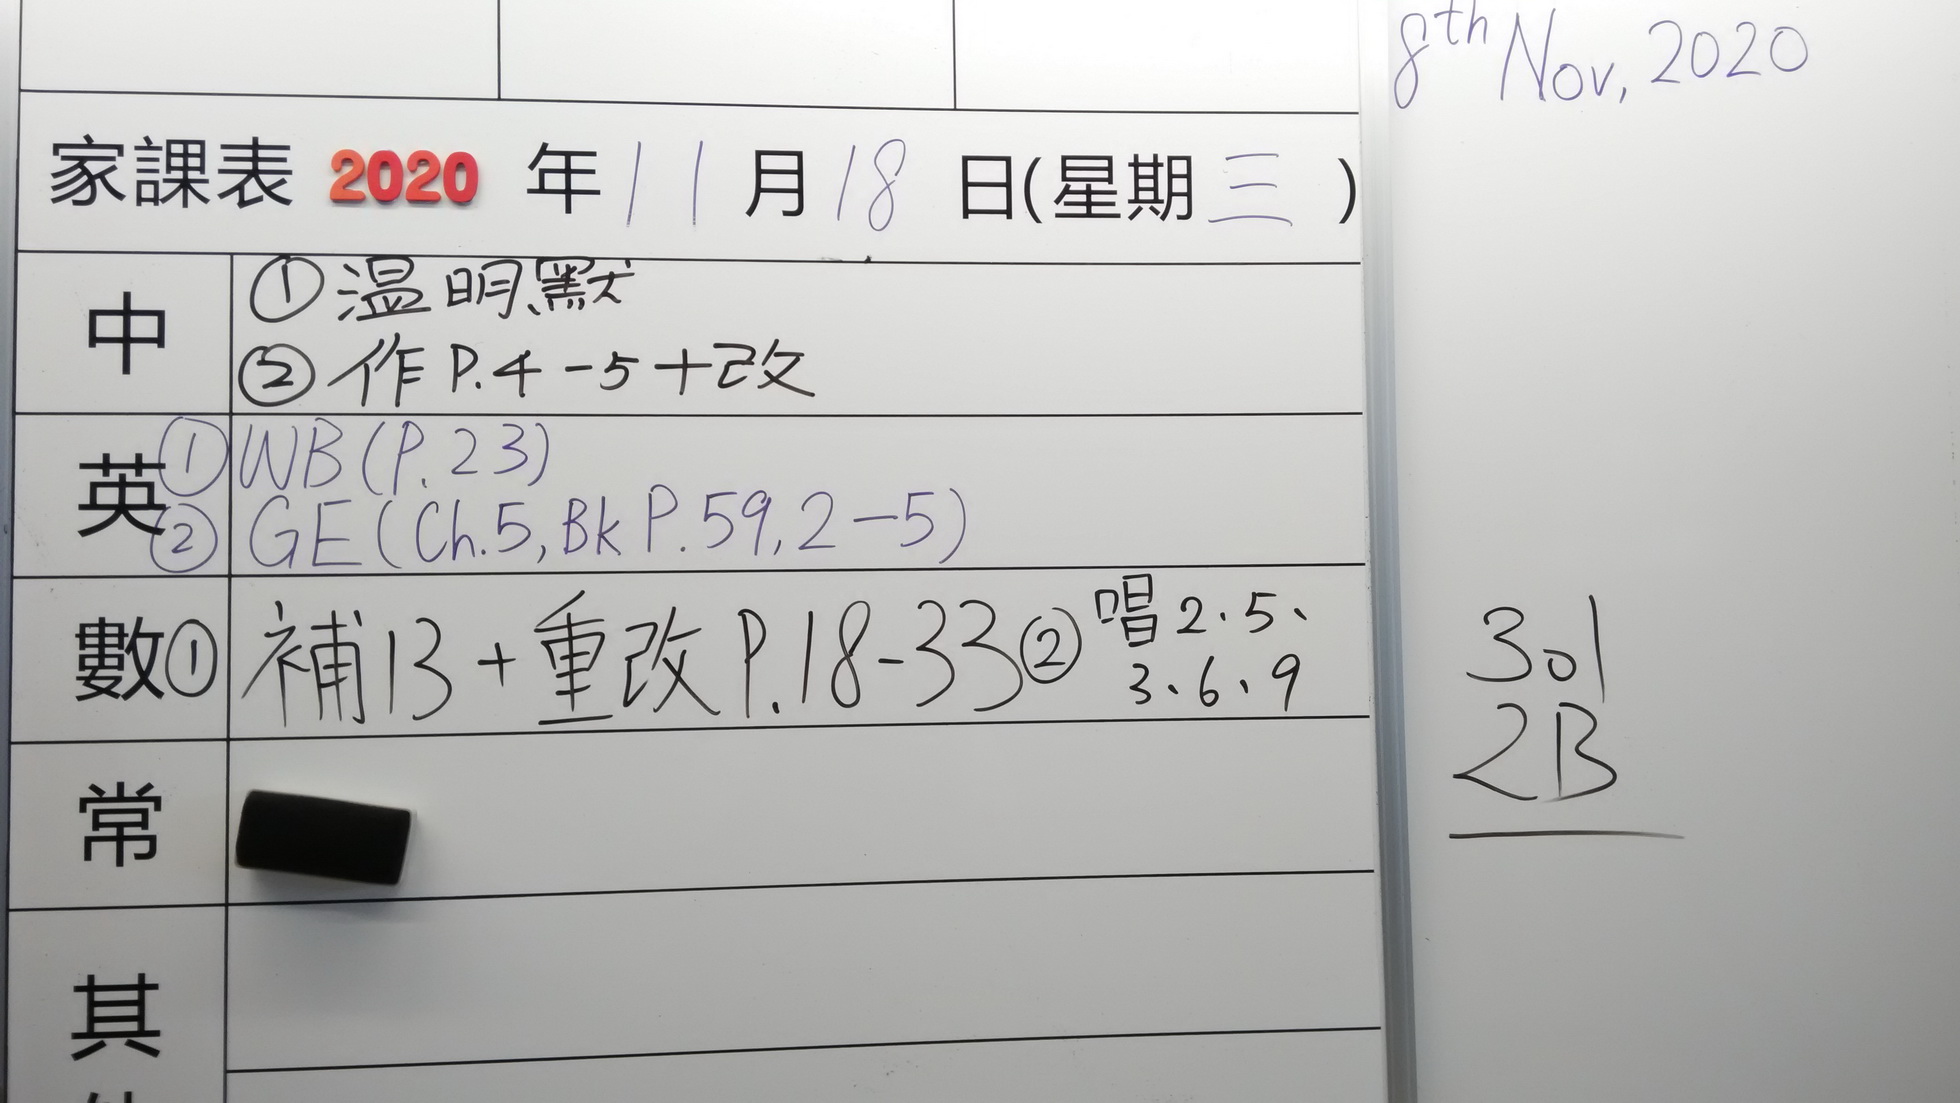 8th Nov, 2020
家課表 2020 年 11 月 18 日(星期 三 )
中
① 溫明默
② 作 P.4-5+改
英
① WB(P.23)
② GE(Ch.5, Bk P.59, 2-5)
數 ① 補13+重改 P.18-33 ② 唱 2、5、
3、6、9
301
2B
常
其